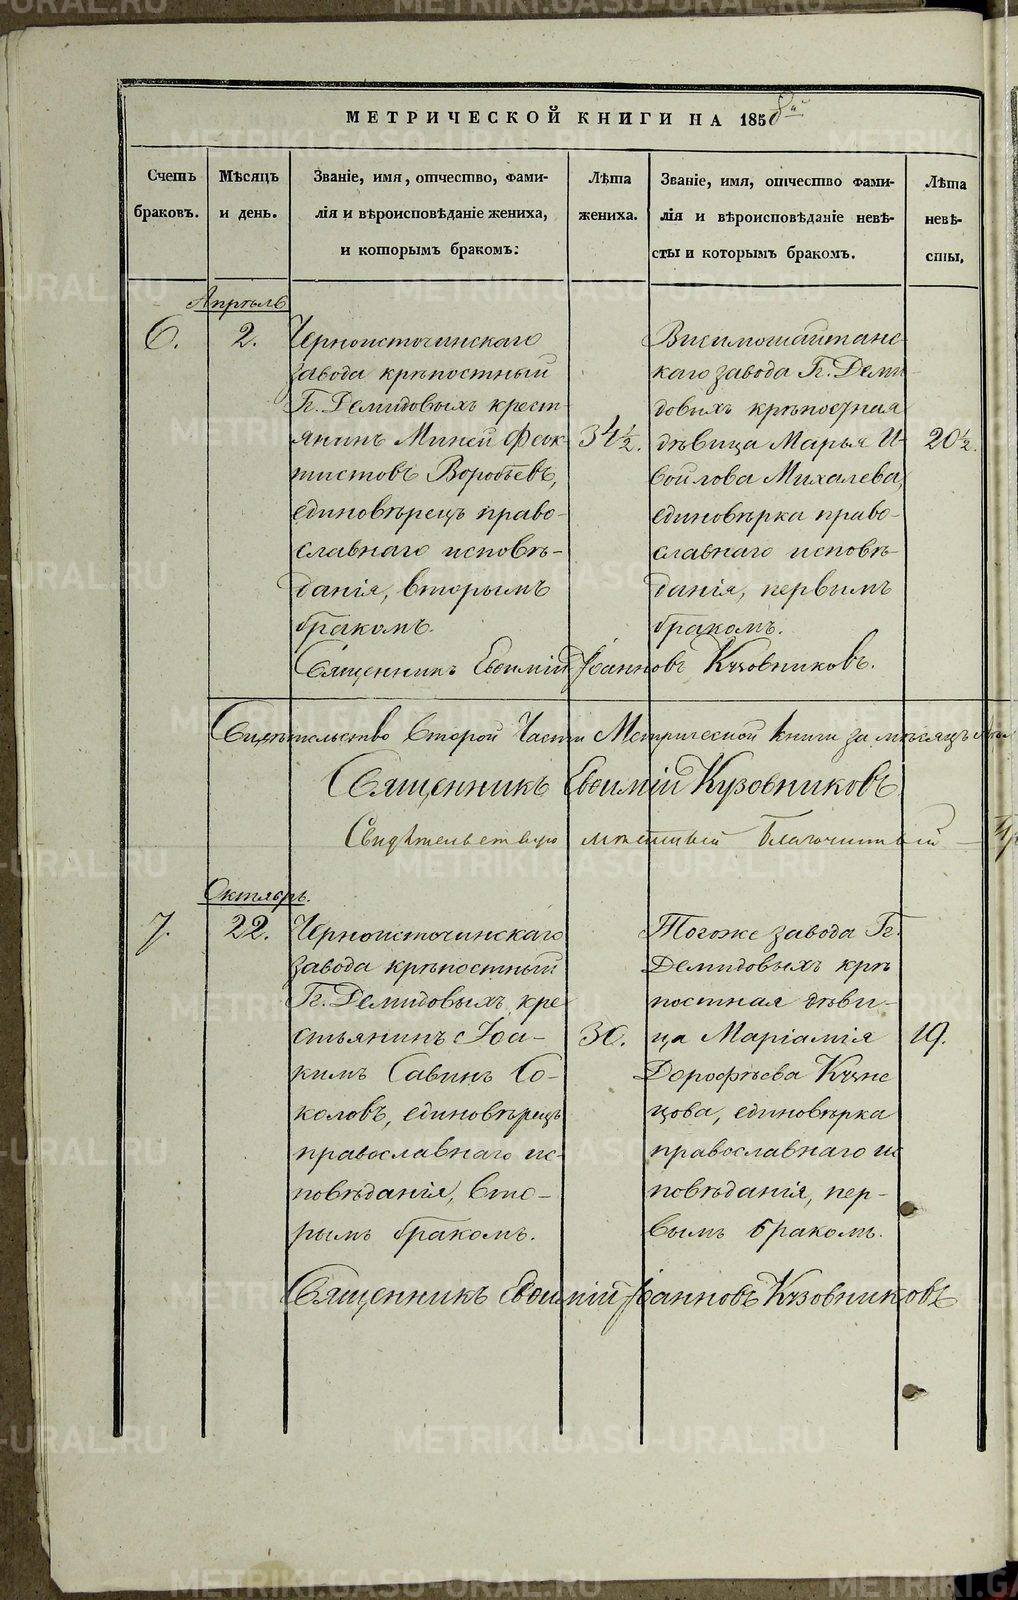 МЕТРИЧЕСКОЙ КНИГИ НА 1858й
Счетъ браковъ.
Мѣсяцъ и день.
Званіе, имя, отчество, фами-
лія и вѣроисповѣданіе жениха,
и которымъ бракомъ:
Лѣта жениха.
Званіе, имя, отчество фами-
лія и вѣроисповѣданіе невѣ-
сты и которымъ бракомъ.
Лѣта невѣ-
сты,
Апрѣль
6.
2.
Черноисточинскаго
завода крѣпостный
Гг. Демидовыхъ крест-
янинъ Миней Феок-
тистовъ Воробьевъ,
единовѣрецъ право-
славнаго исповѣ-
данія, вторымъ
бракомъ.
34½.
Висимошайтанс-
каго завода Гг. Деми-
довыхъ крѣпостная
дѣвица Марья И-
войлова Михалева,
единовѣрка право-
славнаго исповѣ-
данія, первымъ
бракомъ.
20½.
Священникъ Евѳимій Іоанновъ Кузовниковъ.
Свидѣтельство Второй Части Метрической книги за мѣсяцъ
Священникъ Евѳимій Кузовниковъ
Свидѣтельствую мѣстный Благочинный
Октябрь.
7.
22.
Черноисточинскаго
завода крѣпостный
Гг. Демидовыхъ кре-
стьянинъ Іоа-
кимъ Савинъ Со-
коловъ, единовѣрецъ
православнаго ис-
повѣданія, вто-
рымъ бракомъ.
30.
Тогоже завода Гг.
Демидовыхъ крѣ
постная дѣви-
ца Маріамія
Дорофѣева Кузне
цова, единовѣрка
православнаго ис
повѣданія, пер-
вымъ бракомъ.
19.
Священникъ Евѳимій Іоанновъ Кузовниковъ
METRIKI.GASO-URAL.RU